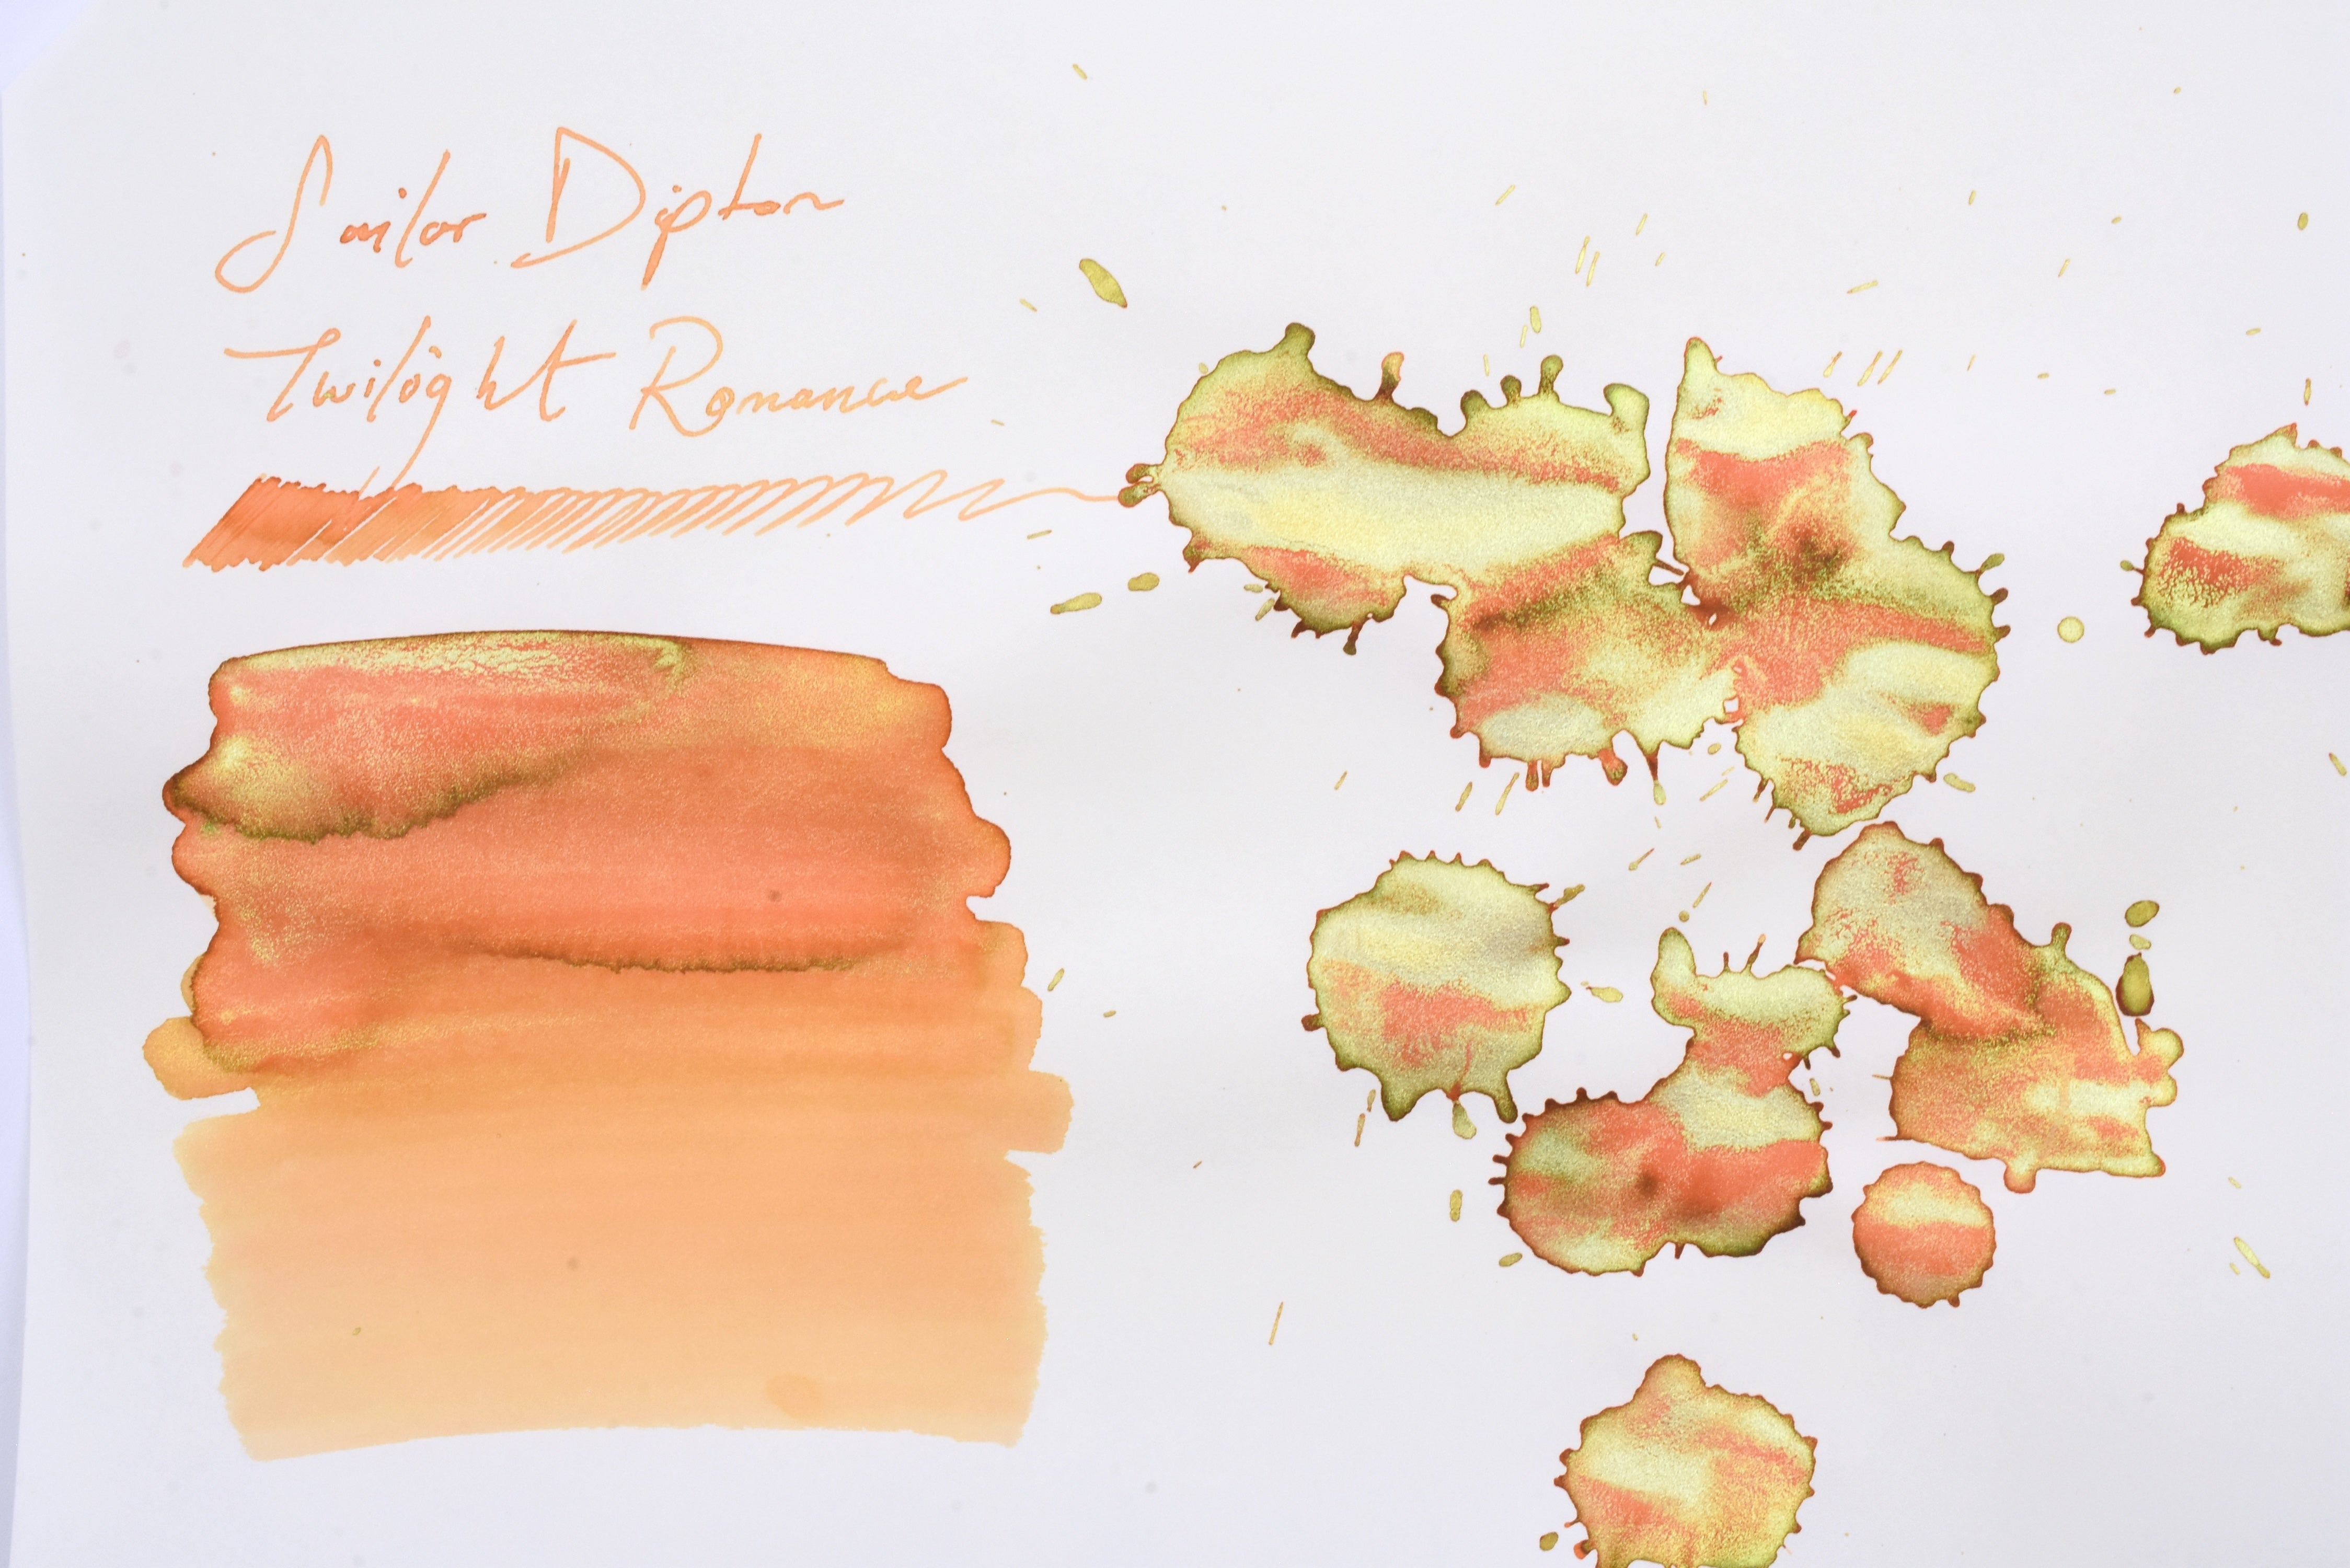 Sailor Dipton
Twilight Romance